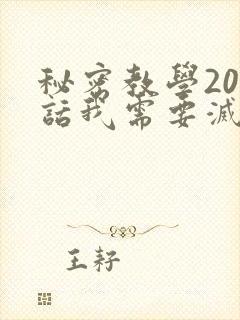 秘密教學20
話我需要滅
王籽